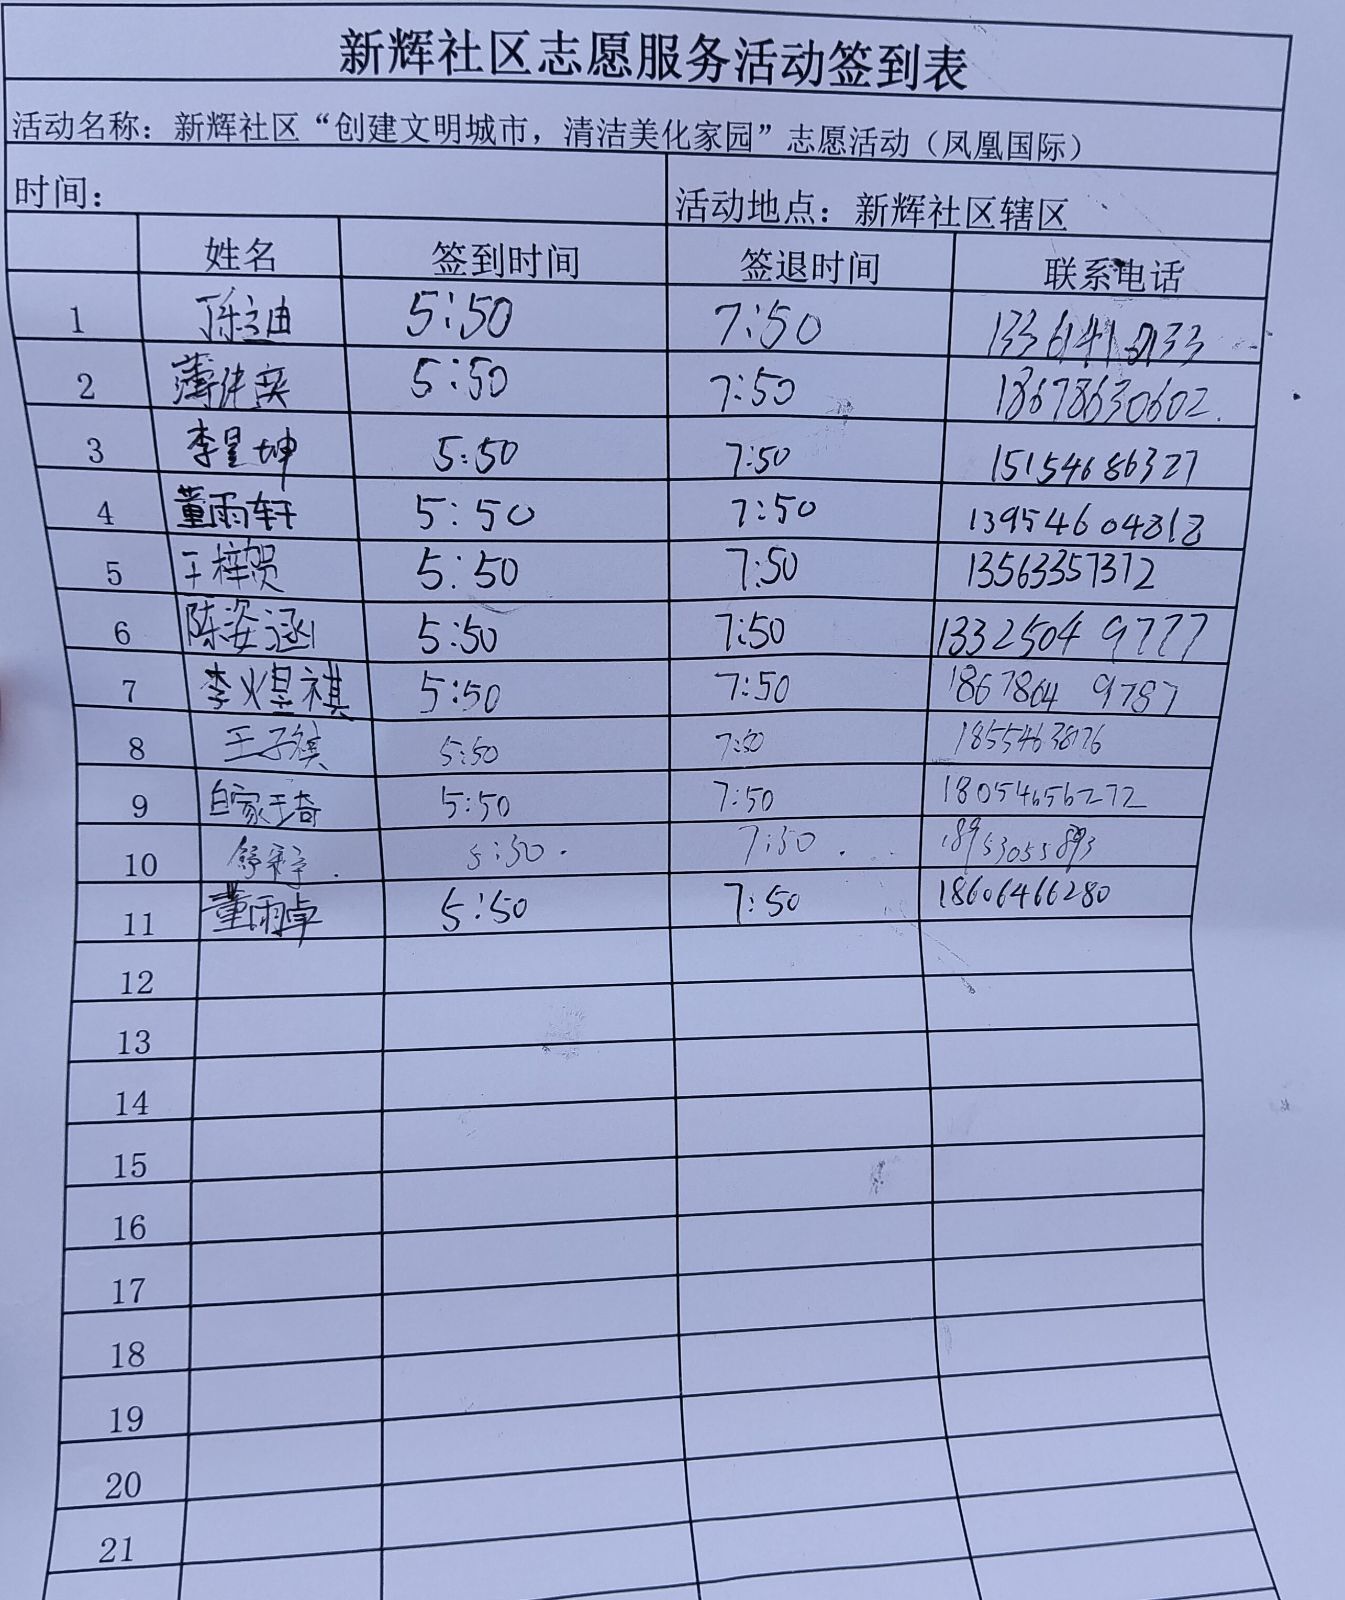 新辉社区志愿服务活动签到表
活动名称：新辉社区“创建文明城市，清洁美化家园”志愿活动（凤凰国际）
时间： 活动地点：新辉社区辖区
姓名 签到时间 签退时间 联系电话
1 5:50 7:50
2 5:50 7:50 18678630602.
3 李昱坤 5:50 7:50 15154686327
4 董雨轩 5:50 7:50 13954604818
5 王梓贺 5:50 7:50 13563357372
6 陈姿涵 5:50 7:50 13325049777
7 李火昱祺 5:50 7:50 18678649787
8 王子祺 5:50 7:50 18554638176
9 自家玉奇 5:50 7:50 18054656272
10 5:50. 7:50. 18953055893
11 董雨卓 5:50 7:50 18606466280
12
13
14
15
16
17
18
19
20
21